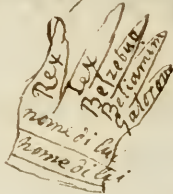 Rex
Lex
Belzebud
Beliamino
nome di lui
nome di lei